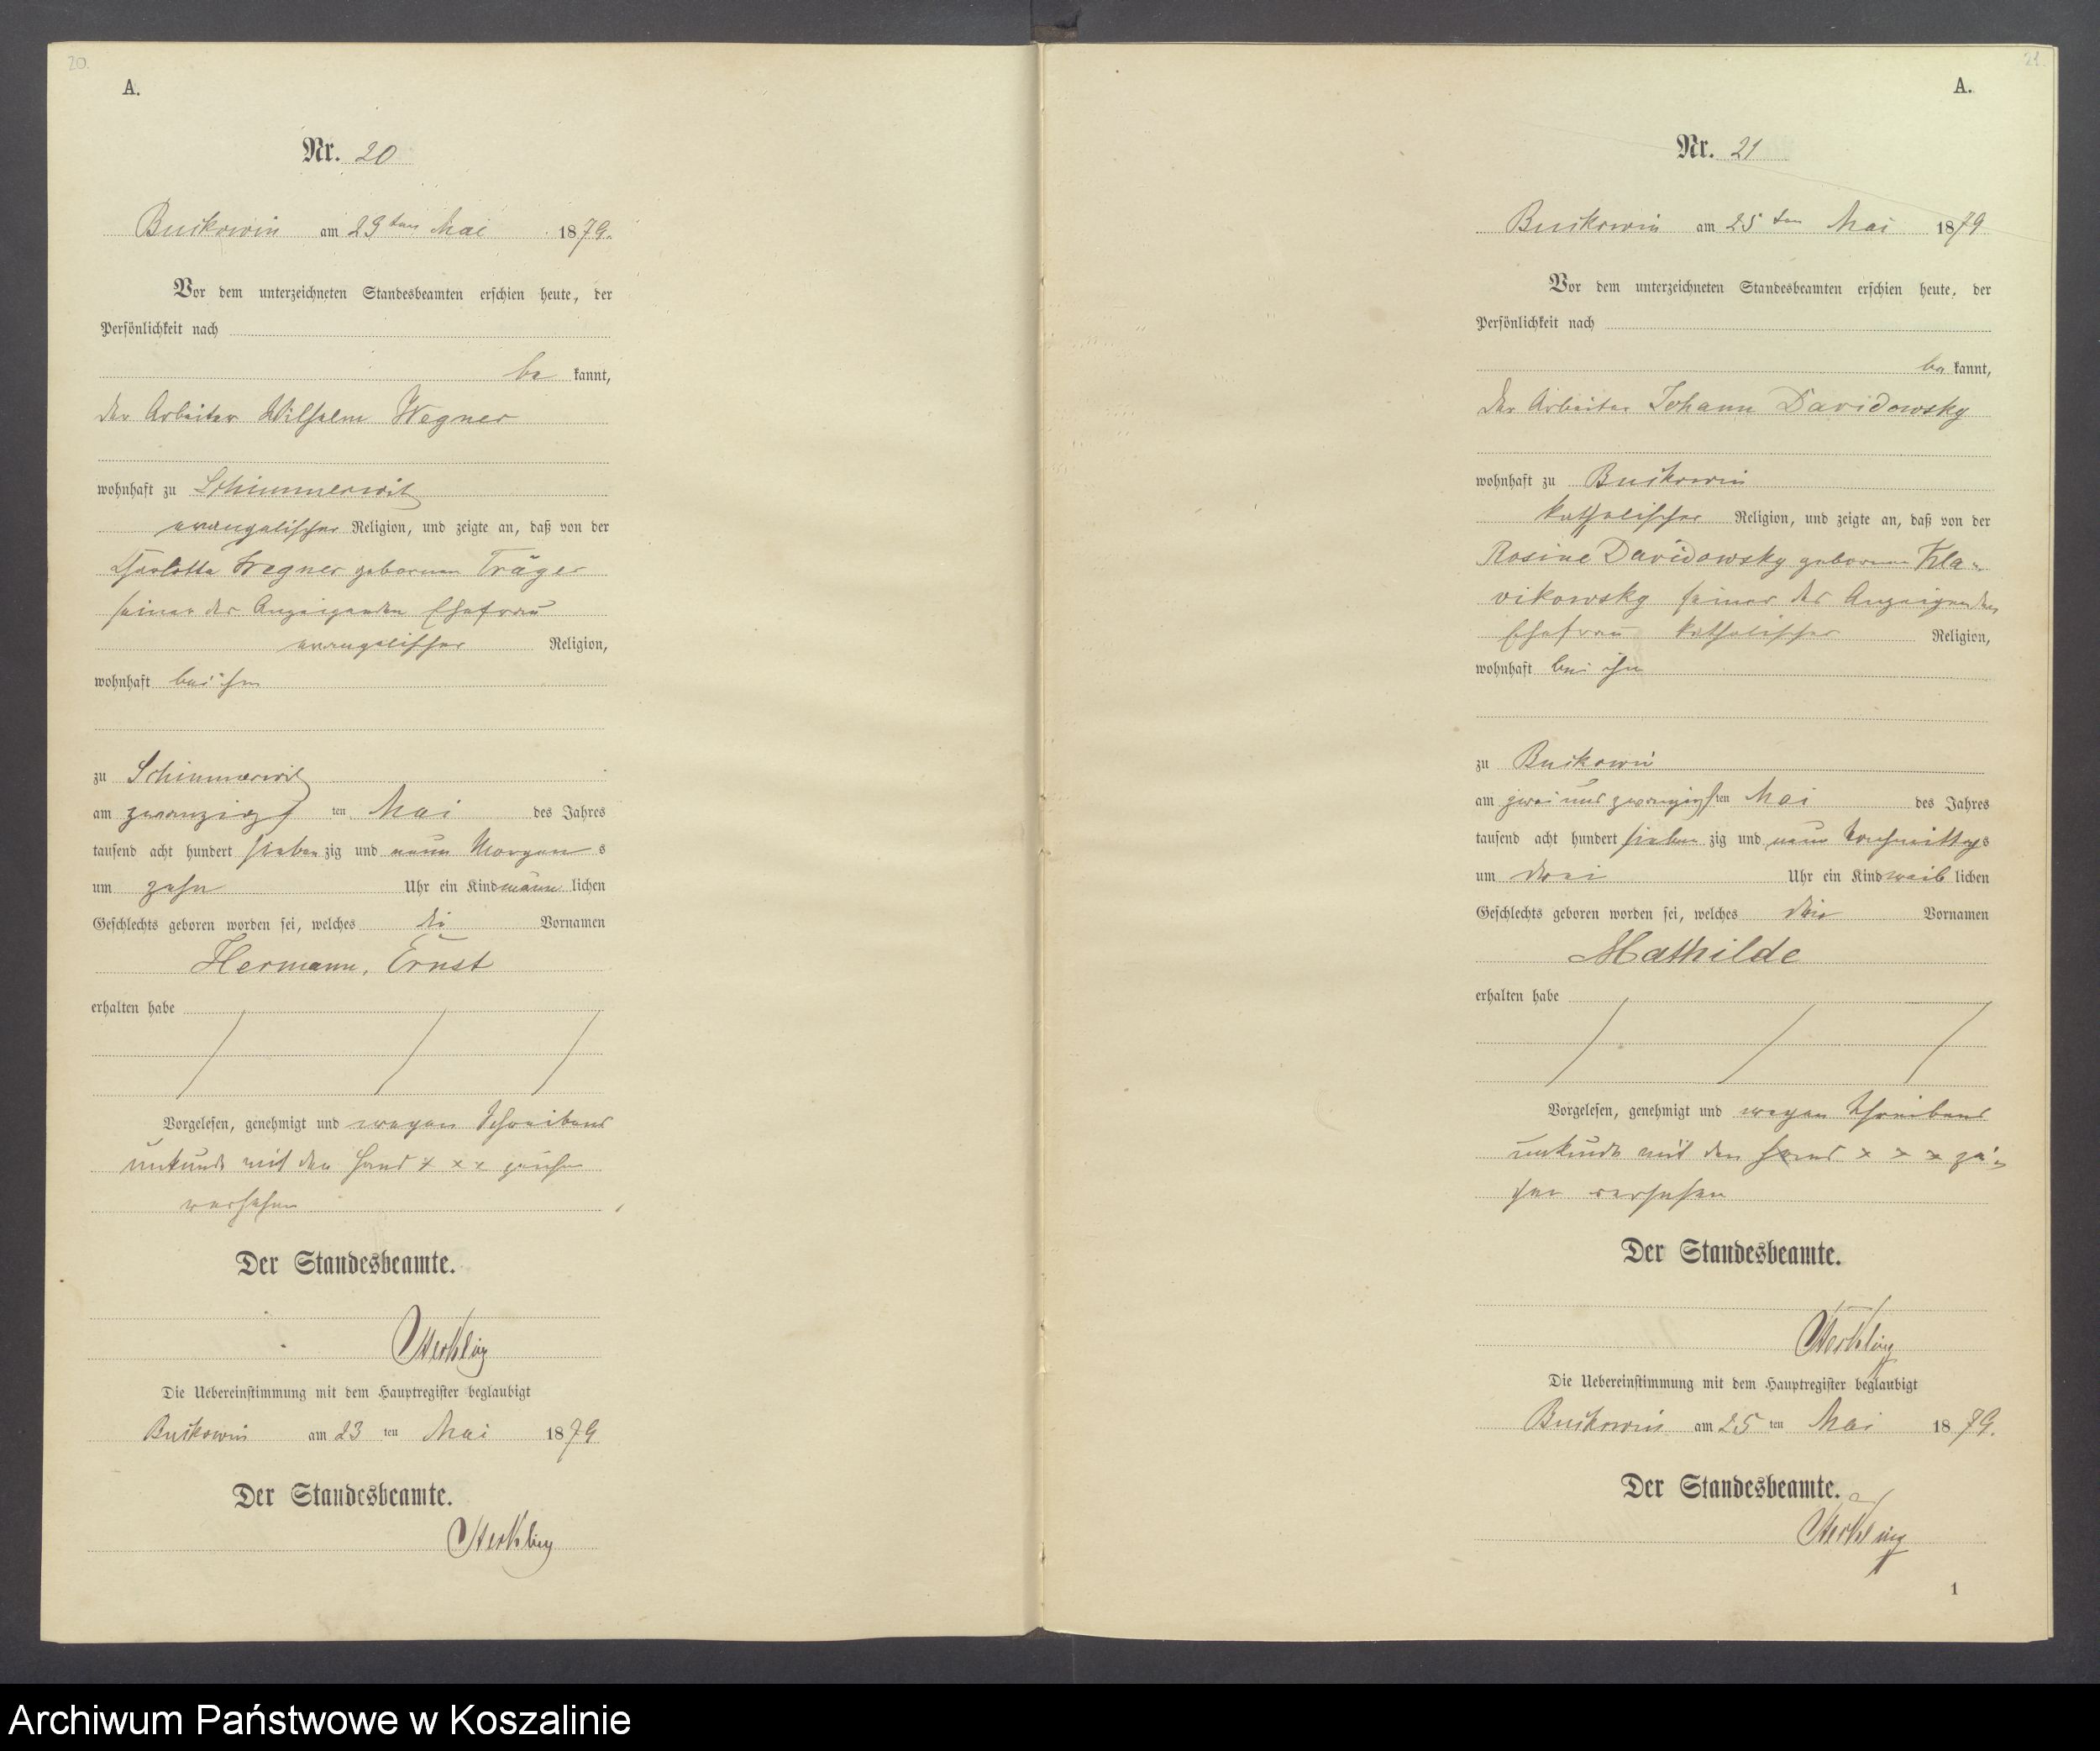 20.
A.
Nr. 20
Buckowin am 23ten Mai 1879.
Vor dem unterzeichneten Standesbeamten erschien heute, der
Persönlichkeit nach
be kannt,
der Arbeiter Wilhelm Wegner
wohnhaft zu Schimmerwitz
evangelischer Religion, und zeigte an, daß von der
Charlotte Wegner geborenen Träger
seiner des Anzeigenden Ehefrau
evangelischer Religion,
wohnhaft bei ihm
zu Schimmerwitz
am zwanzigs ten Mai des Jahres
tausend acht hundert sieben zig und neun Morgen s
um zehn Uhr ein Kind männ lichen
Geschlechts geboren worden sei, welches die Vornamen
Hermann, Ernst
erhalten habe
Vorgelesen, genehmigt und wegen Schreibens
unkunde mit den Hand x x x zeichen
versehen
Der Standesbeamte.
Die Uebereinstimmung mit dem Hauptregister beglaubigt
Buckowin am 23 ten Mai 1879
Der Standesbeamte.
21.
A.
Nr. 21
Buckowin am 25 ten Mai 1879
Vor dem unterzeichneten Standesbeamten erschien heute, der
Persönlichkeit nach
be kannt,
der Arbeiter Johann Davidowsky
wohnhaft zu Buckowin
katholischer Religion, und zeigte an, daß von der
Rosine Davidowsky geborenen Kla-
vikowsky seiner des Anzeigenden
Ehefrau katholischer Religion,
wohnhaft bei ihm
zu Buckowin
am zwei und zwanzigs ten Mai des Jahres
tausend acht hundert sieben zig und neun Nachmittags
um drei Uhr ein Kind weib lichen
Geschlechts geboren worden sei, welches die Vornamen
Mathilde
erhalten habe
Vorgelesen, genehmigt und wegen Schreibens
unkunde mit den Hand x x x zei-
chen versehen
Der Standesbeamte.
Die Uebereinstimmung mit dem Hauptregister beglaubigt
Buckowin am 25 ten Mai 1879.
Der Standesbeamte.
1
Archiwum Państwowe w Koszalinie